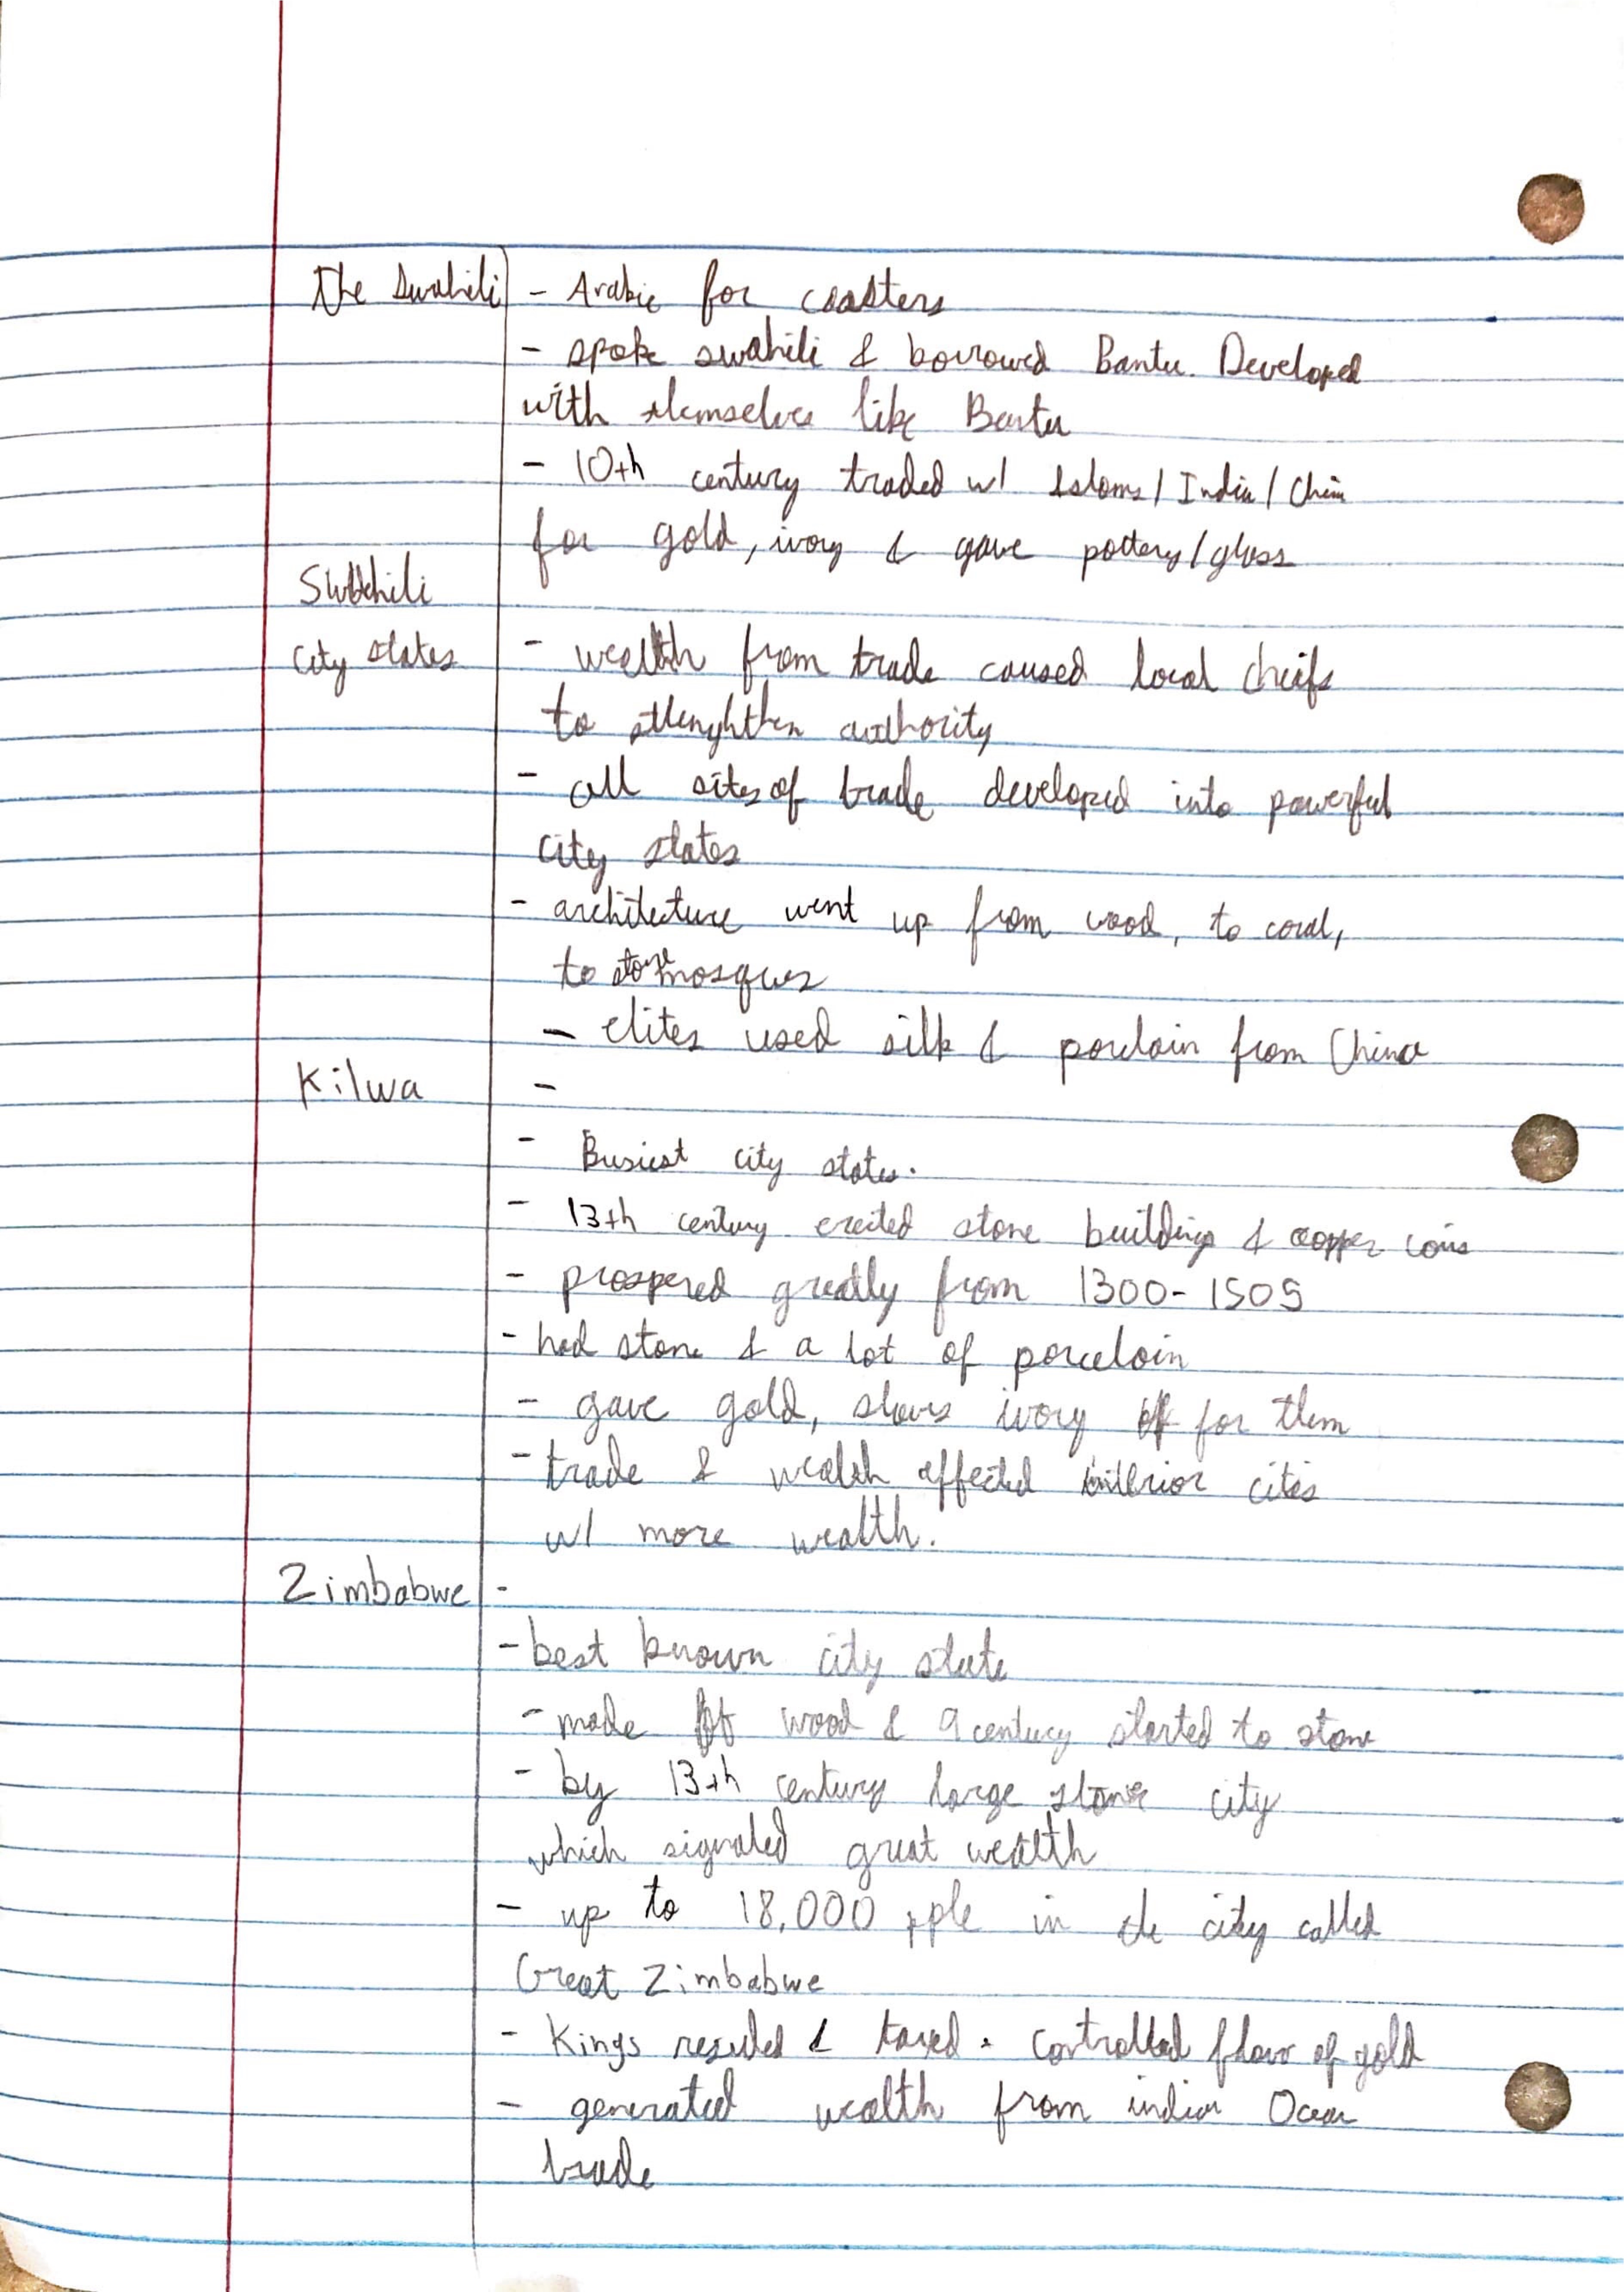 The Swahili - Arabic for coasters
- spoke swahili & borrowed Bantu. Developed
with themselves like Bantu
- 10th century traded w/ Islams / India / Chin
for gold, ivory & gave pottery / glass
Swahili
City states - wealth from trade caused local cheifs
to strenghthen authority
- all sites of trade developed into powerful
city states
- architecture went up from wood, to coral,
to stone mosques
- elites used silk & porclain from China
Kilwa -
- Busiest city state.
- 13th century erected stone buildings & copper coins
- prospered greatly from 1300-1505
- had stone & a lot of porceloin
- gave gold, slaves ivory for them
- trade & wealth affected interior cities
w/ more wealth.
Zimbabwe -
- best known city state
- made of wood & 9 century started to stone
- by 13th century large stone city
which signaled great wealth
- up to 18,000 pple in the city called
Great Zimbabwe
- Kings & taxed . controlled flow of gold
- generated wealth from indian Ocean
trade